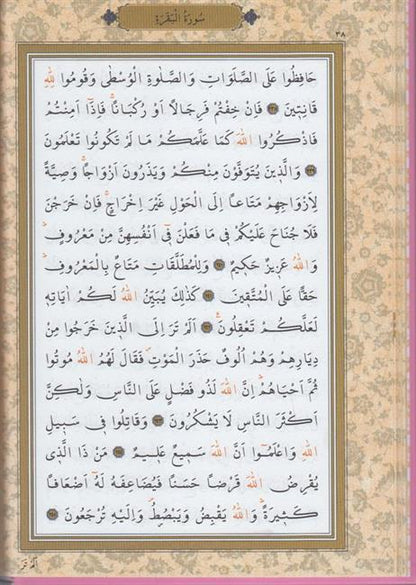 سُورَةُ الْبَقَرَةِ
٣٨
حَافِظُوا عَلَى الصَّلَوَاتِ وَالصَّلٰوةِ الْوُسْطٰى وَقُومُوا لِلّٰهِ
قَانِت۪ينَ ﴿٢٣٨﴾ فَاِنْ خِفْتُمْ فَرِجَالًا اَوْ رُكْبَانًاۚ فَاِذَٓا اَمِنْتُمْ
فَاذْكُرُوا اللّٰهَ كَمَا عَلَّمَكُمْ مَا لَمْ تَكُونُوا تَعْلَمُونَ
﴿٢٣٩﴾ وَالَّذ۪ينَ يُتَوَفَّوْنَ مِنْكُمْ وَيَذَرُونَ اَزْوَاجًاۚ وَصِيَّةً
لِاَزْوَاجِهِمْ مَتَاعًا اِلَى الْحَوْلِ غَيْرَ اِخْرَاجٍۚ فَاِنْ خَرَجْنَ
فَلَا جُنَاحَ عَلَيْكُمْ ف۪ي مَا فَعَلْنَ ف۪ٓي اَنْفُسِهِنَّ مِنْ مَعْرُوفٍۜ
وَاللّٰهُ عَز۪يزٌ حَك۪يمٌ ﴿٢٤٠﴾ وَلِلْمُطَلَّقَاتِ مَتَاعٌ بِالْمَعْرُوفِۜ
حَقًّا عَلَى الْمُتَّق۪ينَ ﴿٢٤١﴾ كَذٰلِكَ يُبَيِّنُ اللّٰهُ لَكُمْ اٰيَاتِه۪
لَعَلَّكُمْ تَعْقِلُونَ۟ ﴿٢٤٢﴾ اَلَمْ تَرَ اِلَى الَّذ۪ينَ خَرَجُوا مِنْ
دِيَارِهِمْ وَهُمْ اُلُوفٌ حَذَرَ الْمَوْتِۖ فَقَالَ لَهُمُ اللّٰهُ مُوتُوا
ثُمَّ اَحْيَاهُمْۜ اِنَّ اللّٰهَ لَذُو فَضْلٍ عَلَى النَّاسِ وَلٰكِنَّ
اَكْثَرَ النَّاسِ لَا يَشْكُرُونَ ﴿٢٤٣﴾ وَقَاتِلُوا ف۪ي سَب۪يلِ
اللّٰهِ وَاعْلَمُٓوا اَنَّ اللّٰهَ سَم۪يعٌ عَل۪يمٌ ﴿٢٤٤﴾ مَنْ ذَا الَّذ۪ي
يُقْرِضُ اللّٰهَ قَرْضًا حَسَنًا فَيُضَاعِفَهُ لَهُٓ اَضْعَافًا
كَث۪يرَةًۜ وَاللّٰهُ يَقْبِضُ وَيَبْصُۣطُۖ وَاِلَيْهِ تُرْجَعُونَ ﴿٢٤٥﴾
اَلَمْ تَرَ